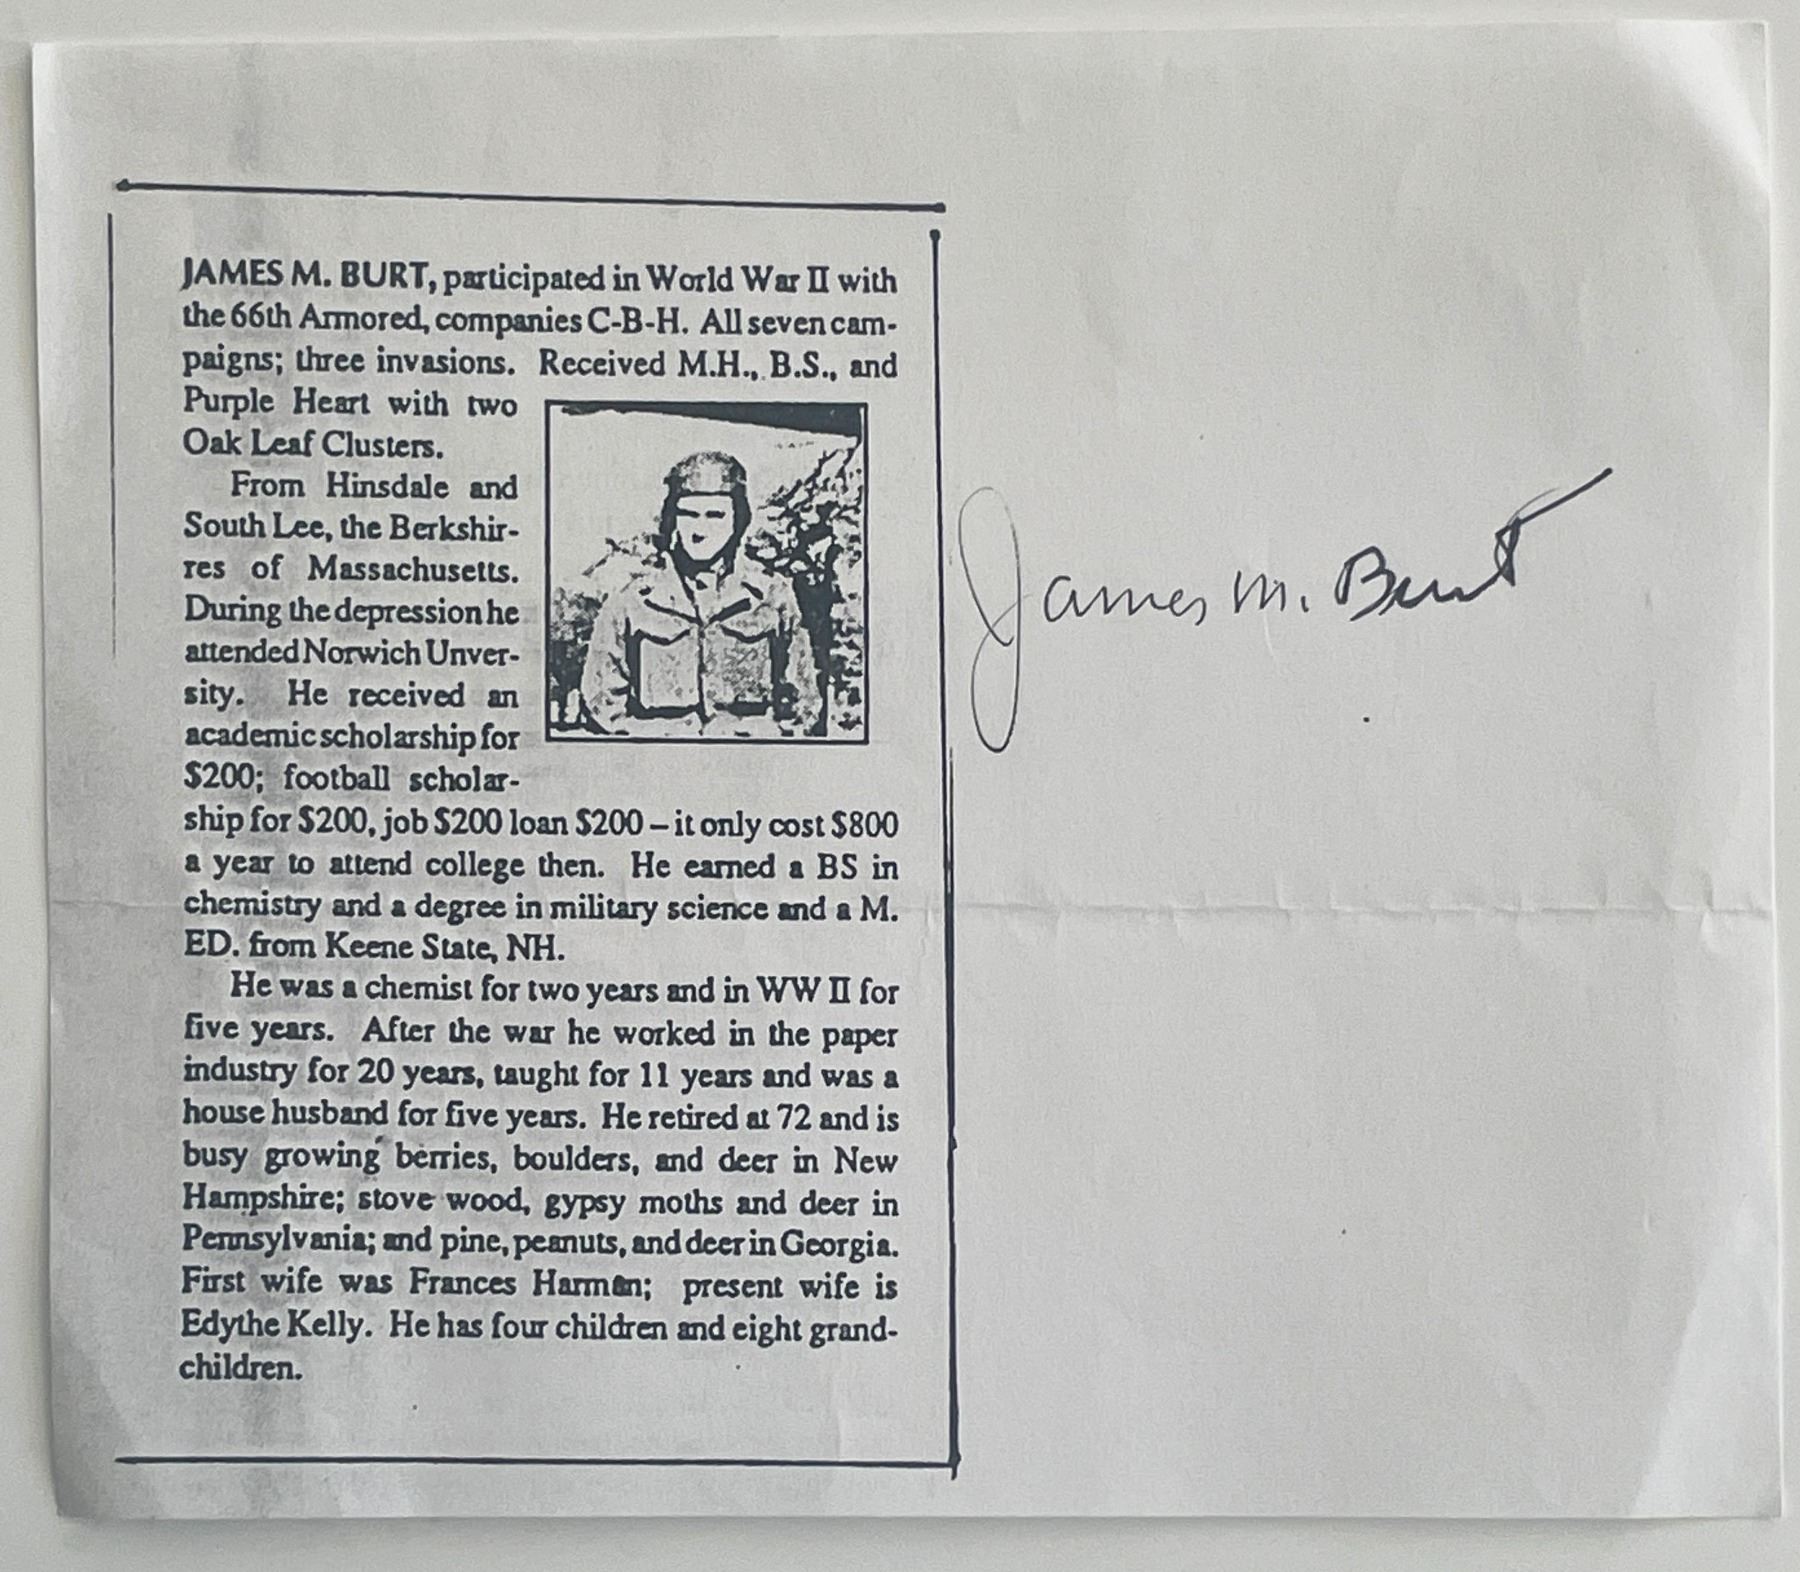 JAMES M. BURT, participated in World War II with
the 66th Armored, companies C-B-H. All seven cam-
paigns; three invasions. Received M.H., B.S., and
Purple Heart with two
Oak Leaf Clusters.
From Hinsdale and
South Lee, the Berkshir-
res of Massachusetts.
During the depression he
attended Norwich Unver-
sity. He received an
academic scholarship for
$200; football scholar-
ship for $200, job $200 loan $200 – it only cost $800
a year to attend college then. He earned a BS in
chemistry and a degree in military science and a M.
ED. from Keene State, NH.
He was a chemist for two years and in WW II for
five years. After the war he worked in the paper
industry for 20 years, taught for 11 years and was a
house husband for five years. He retired at 72 and is
busy growing berries, boulders, and deer in New
Hampshire; stove wood, gypsy moths and deer in
Pennsylvania; and pine, peanuts, and deer in Georgia.
First wife was Frances Harman; present wife is
Edythe Kelly. He has four children and eight grand-
children.
James M. Burt